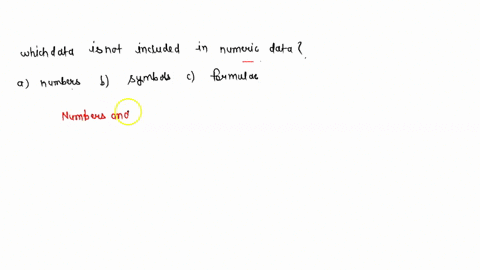 which data is not included in numeric data?
a) numbers b) symbols c) formulae
Numbers and